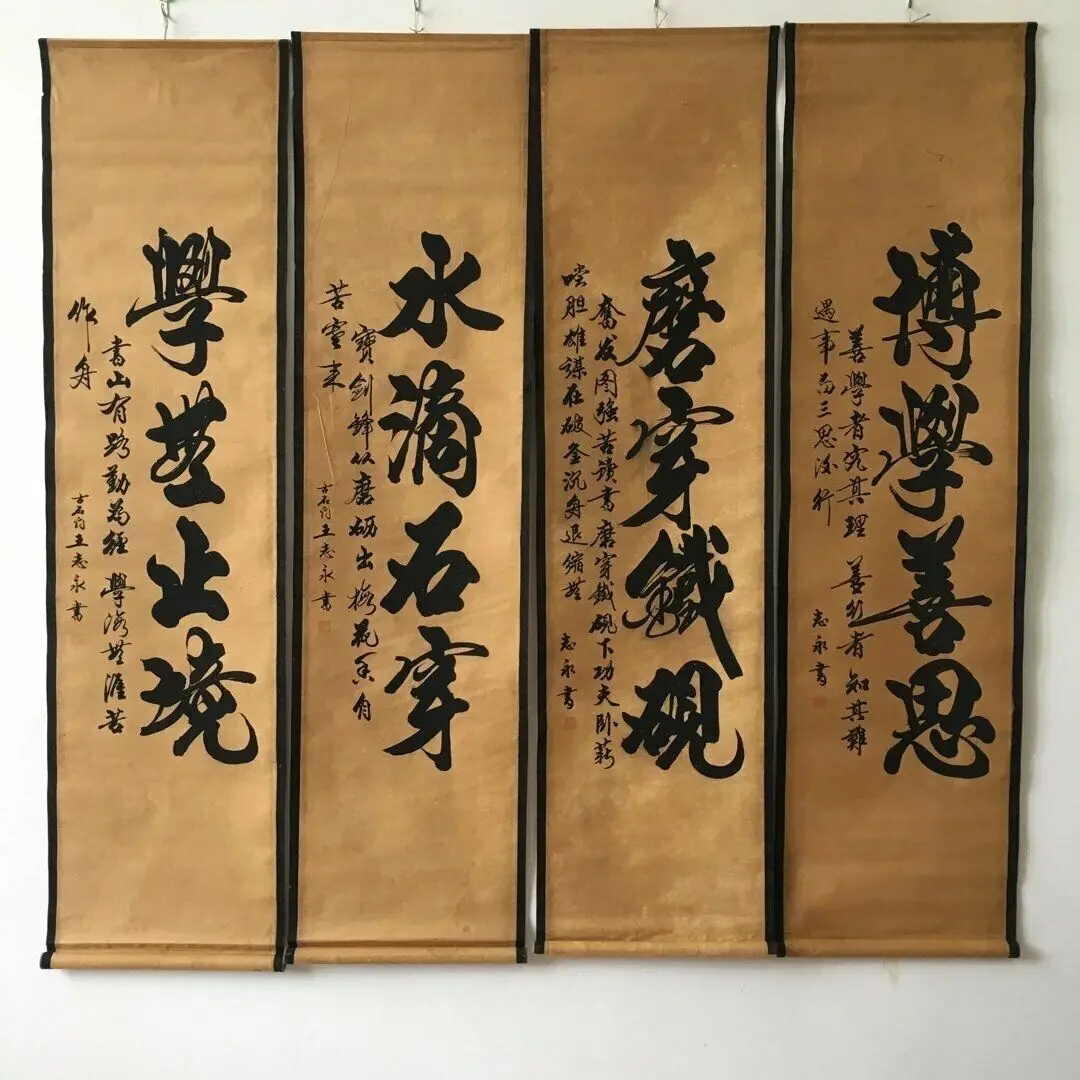 博學善思
善學者究其理 善行者知其難
遇事三思後行
志永書
磨穿鐵硯
奮发图強苦读書磨穿鐵硯下功夫卧薪
嚐胆雄謀在破釜沉舟退縮無
志永書
水滴石穿
寶劍鋒从磨砺出梅花香自
苦寒来
古石王志永書
學無止境
書山有路勤為徑 學海無涯苦
作舟
古石王志永書